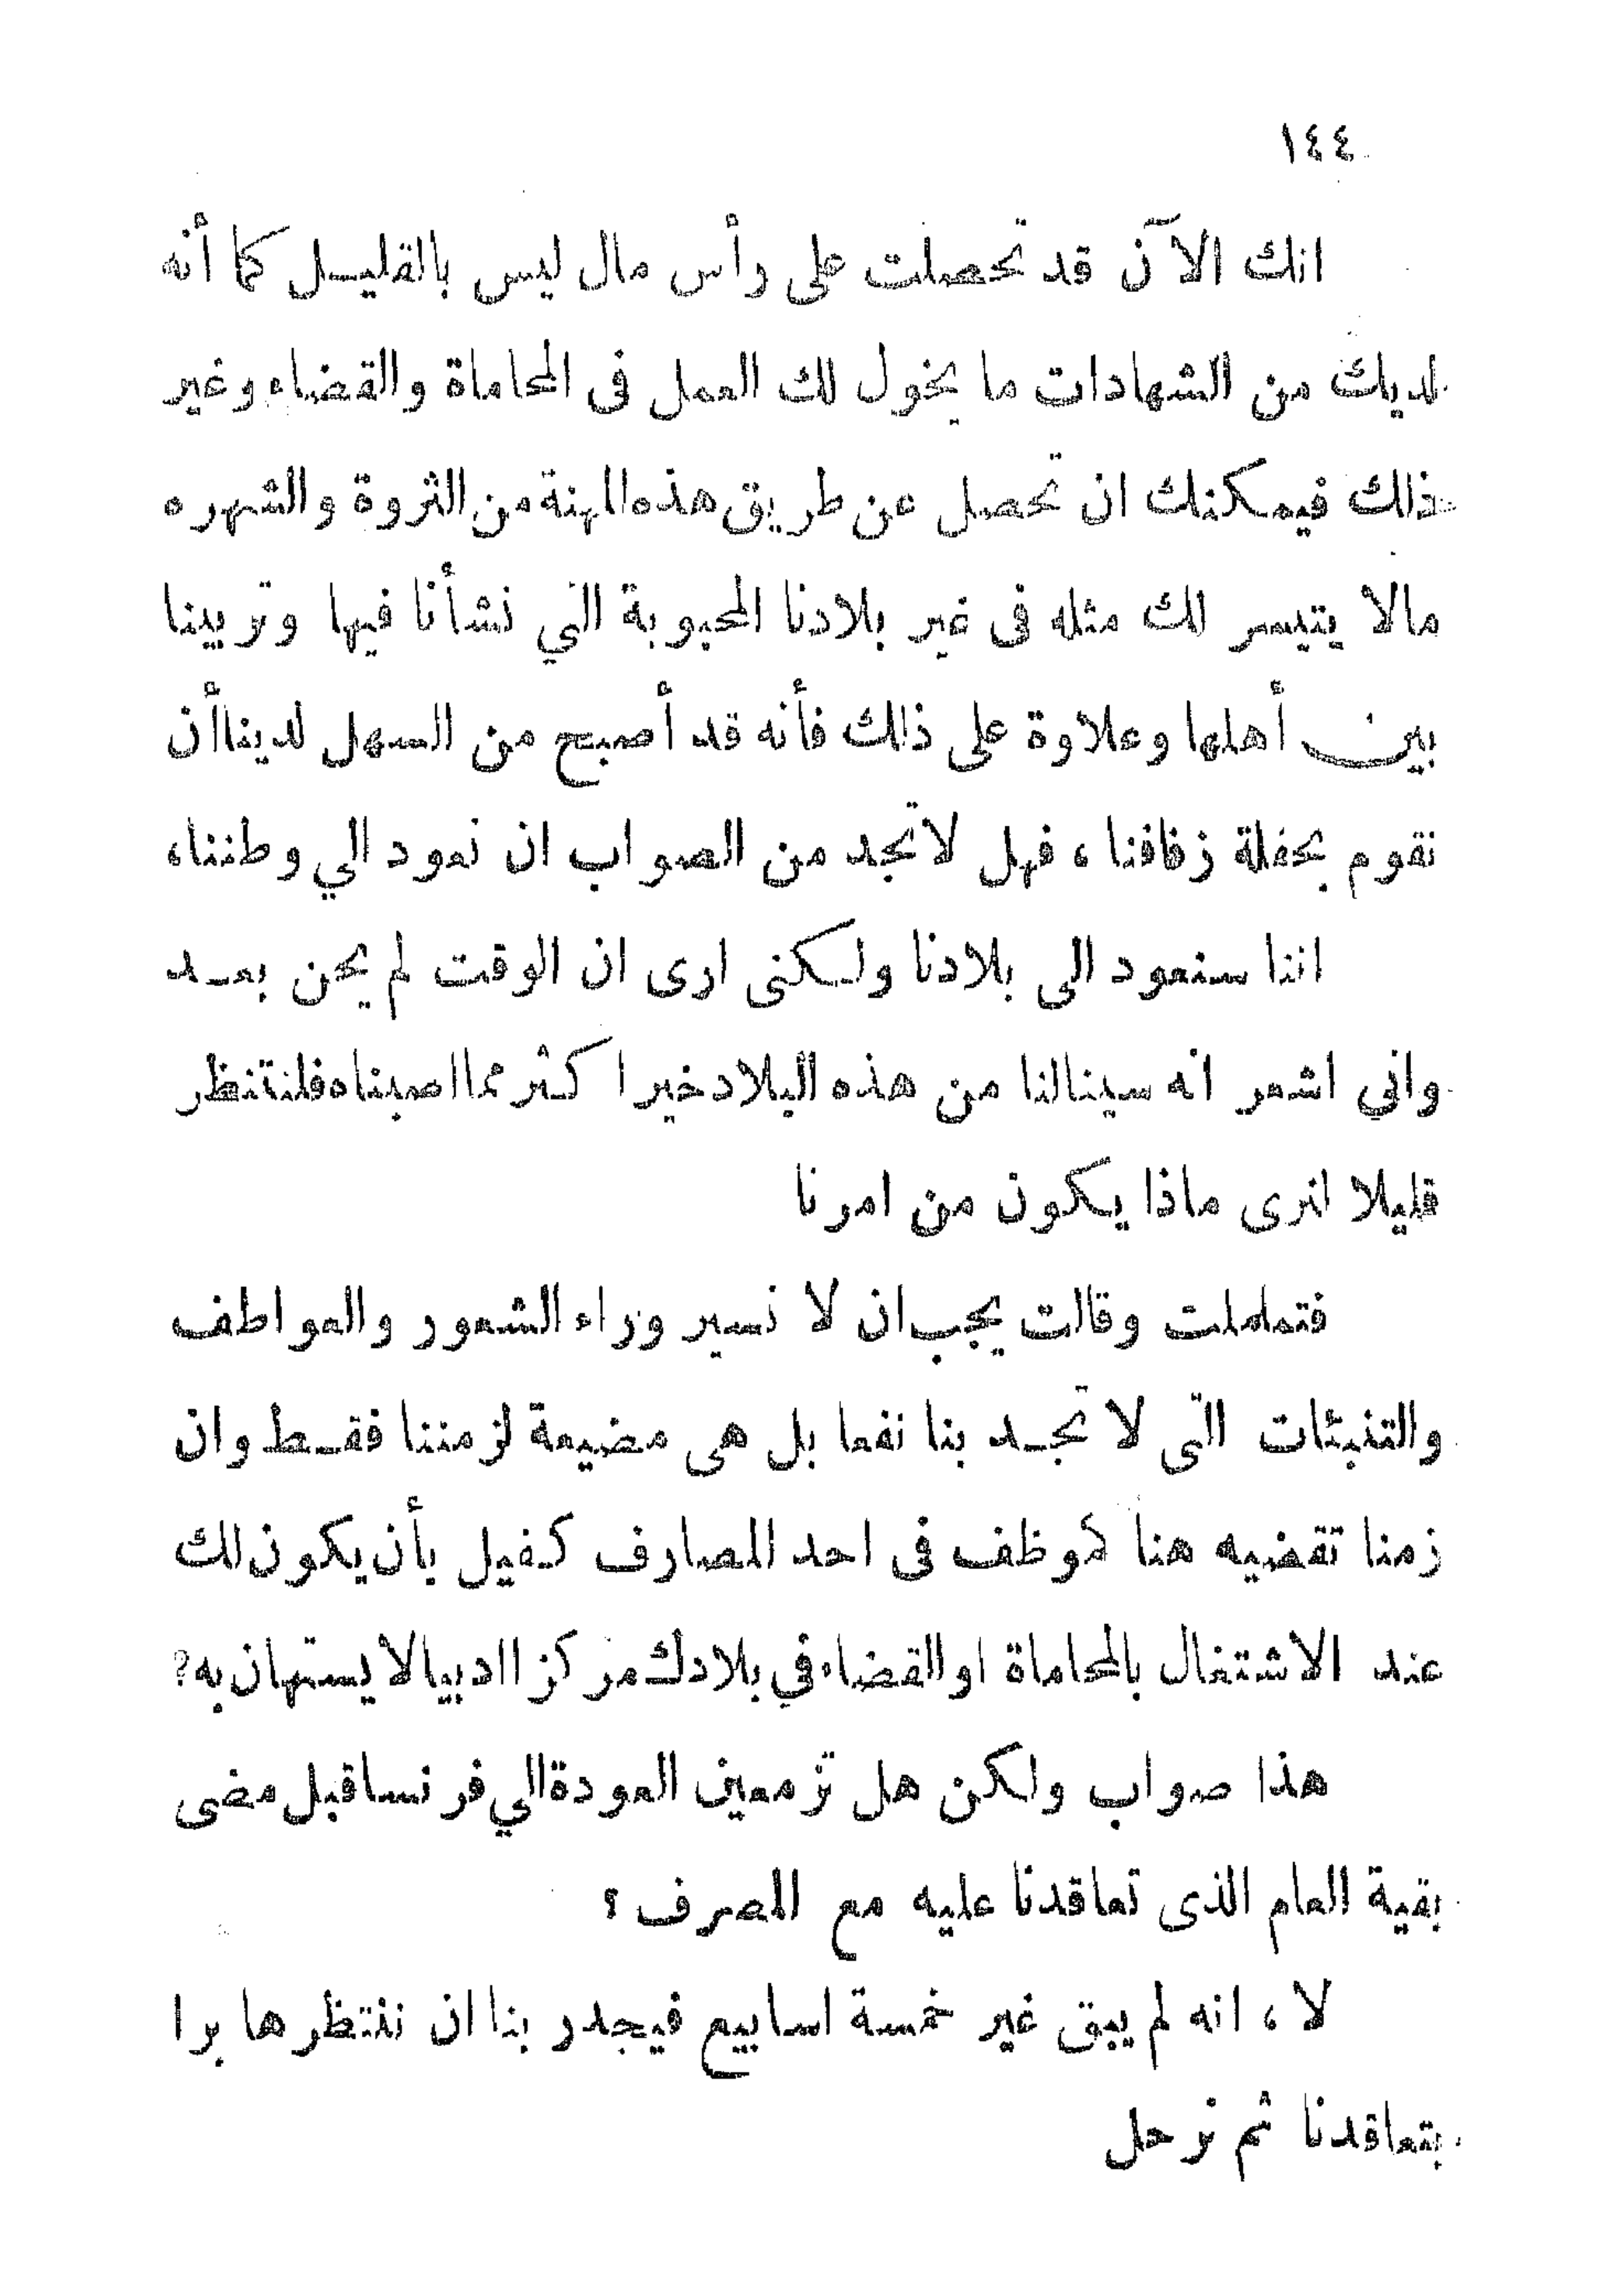 ١٤٤
انك الآن قد تحصلت على رأس مال ليس بالقليل كما أنه
لديك من الشهادات ما يخول لك العمل فى المحاماة والقضاء وغير
ذلك فيمكنك ان تحصل عن طريق هذه المهنة من الثروة والشهره
مالا يتيسر لك مثله فى غير بلادنا المحبوبة التي نشأنا فيها وتربينا
بين أهلها وعلاوة على ذلك فأنه قد أصبح من السهل لدينا أن
نقوم بحفلة زفافنا ، فهل لا تجد من الصواب ان نعود الي وطننا ،
اننا سنعود الى بلادنا ولكنى ارى ان الوقت لم يحن بعد
واني اشعر انه سينالنا من هذه البلاد خيرا كثر مما اصبناه فلنتنظر
قليلا لنرى ماذا يكون من امرنا
فتململت وقالت يجب ان لا نسير وراء الشعور والعواطف
والتنبئات التى لا تجد بنا نفعا بل هى مضيعة لزمننا فقط وان
زمنا تقضيه هنا كموظف فى احد المصارف كفيل بأن يكون لك
عند الاشتغال بالمحاماة او القضاء في بلادك مركزا ادبيا لا يستهان به ؟
هذا صواب ولكن هل تزمعين العودة الي فرنسا قبل مضى
بقية العام الذى تعاقدنا عليه مع المصرف ؟
لا ، انه لم يبق غير خمسة اسابيع فيجدر بنا ان ننتظرها برا
بتعاقدنا ثم نرحل